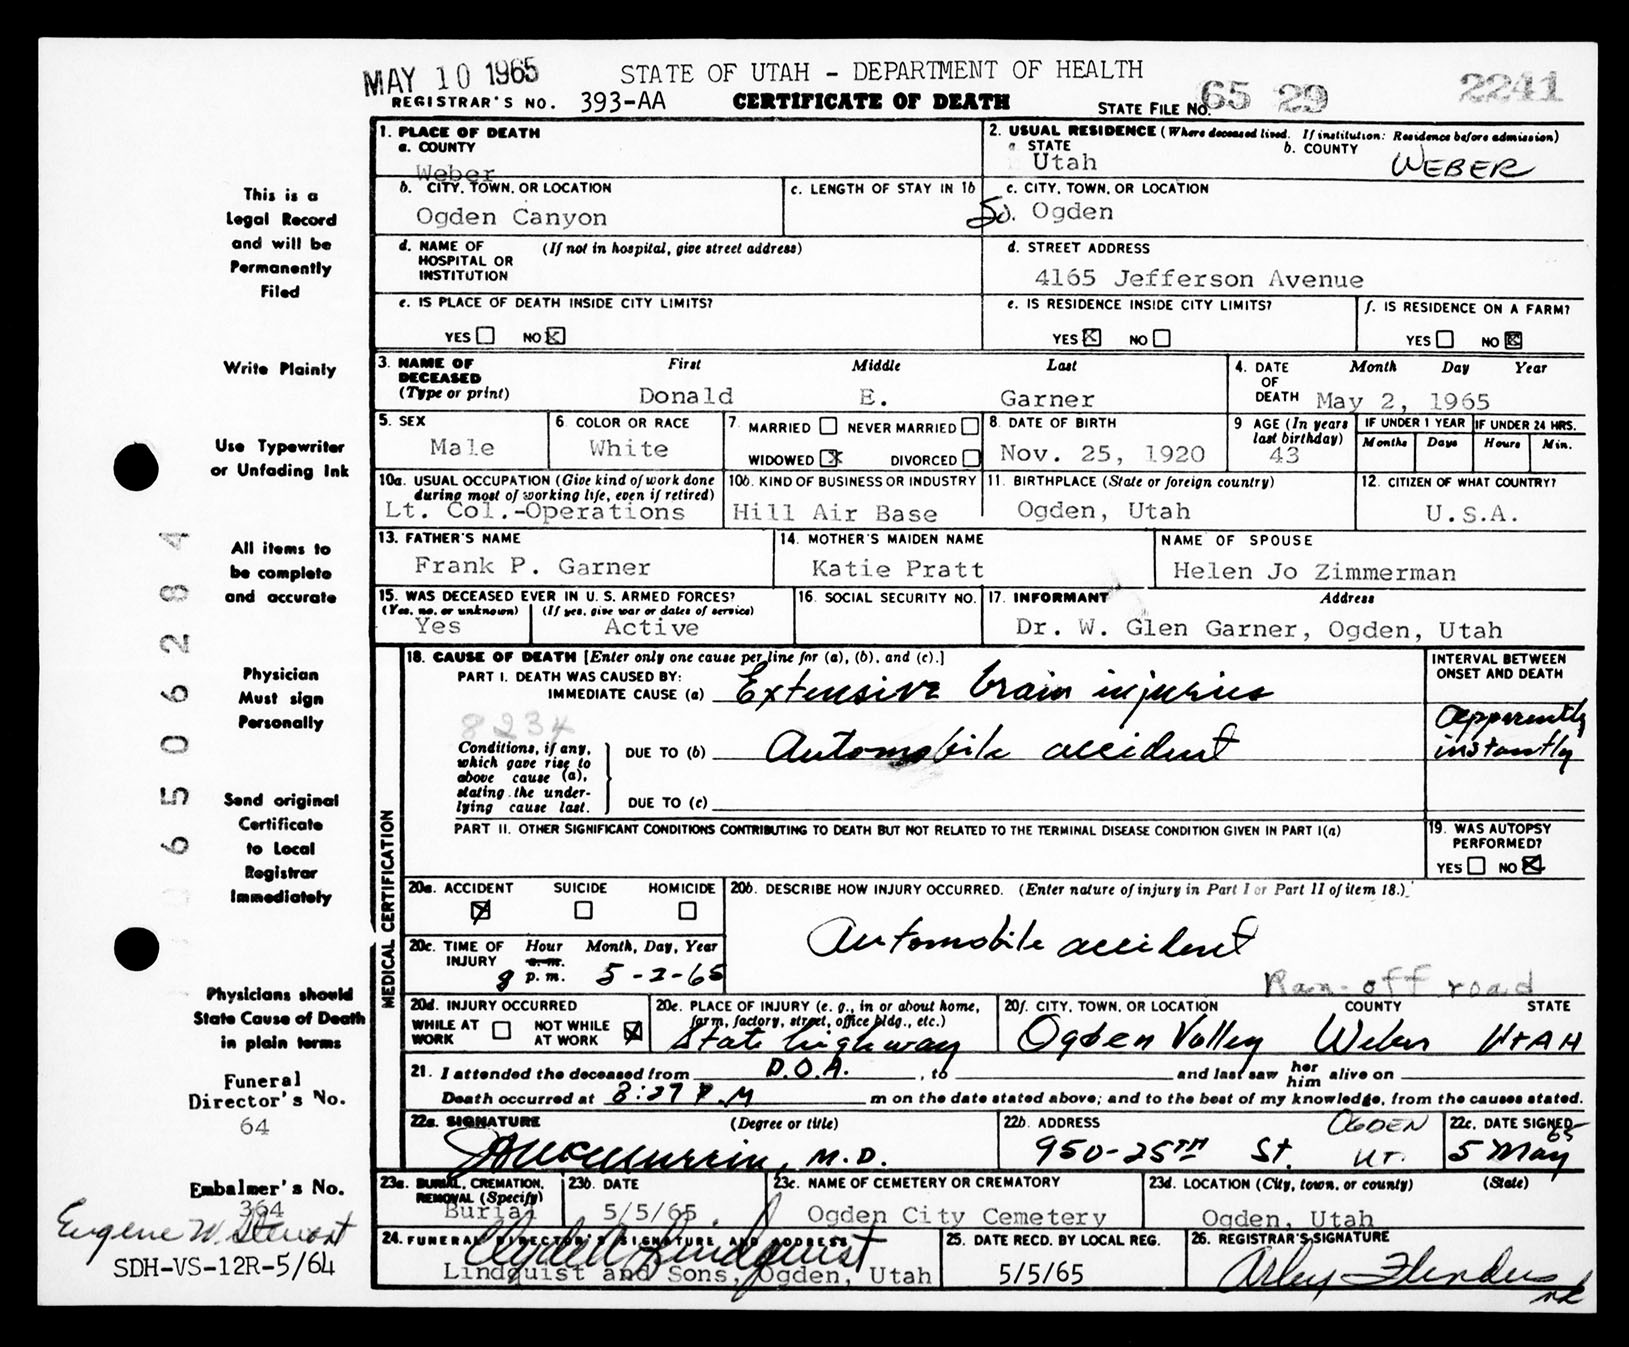 MAY 10 1965
STATE OF UTAH - DEPARTMENT OF HEALTH
REGISTRAR'S NO. 393-AA CERTIFICATE OF DEATH STATE FILE NO. 65 29 2241
1. PLACE OF DEATH
a. COUNTY
Weber
2. USUAL RESIDENCE (Where deceased lived. If institution: Residence before admission)
a STATE b. COUNTY
Utah WEBER
b. CITY, TOWN, OR LOCATION c. LENGTH OF STAY IN 1b
Ogden Canyon
c. CITY, TOWN, OR LOCATION
So. Ogden
d. NAME OF (If not in hospital, give street address)
HOSPITAL OR
INSTITUTION
d. STREET ADDRESS
4165 Jefferson Avenue
e. IS PLACE OF DEATH INSIDE CITY LIMITS?
YES NO X
e. IS RESIDENCE INSIDE CITY LIMITS?
YES X NO
f. IS RESIDENCE ON A FARM?
YES NO X
3. NAME OF First Middle Last
DECEASED
(Type or print) Donald E. Garner
4. DATE Month Day Year
OF
DEATH May 2, 1965
5. SEX
Male
6 COLOR OR RACE
White
7. MARRIED NEVER MARRIED
WIDOWED X DIVORCED
8. DATE OF BIRTH
Nov. 25, 1920
9 AGE (In years
last birthday)
43
IF UNDER 1 YEAR IF UNDER 24 HRS.
Months Days Hours Min.
10a. USUAL OCCUPATION (Give kind of work done
during most of working life, even if retired)
Lt. Col.-Operations
10b. KIND OF BUSINESS OR INDUSTRY
Hill Air Base
11. BIRTHPLACE (State or foreign country)
Ogden, Utah
12. CITIZEN OF WHAT COUNTRY?
U.S.A.
13. FATHER'S NAME
Frank P. Garner
14. MOTHER'S MAIDEN NAME
Katie Pratt
NAME OF SPOUSE
Helen Jo Zimmerman
15. WAS DECEASED EVER IN U. S. ARMED FORCES?
(Yes, no, or unknown) (If yes, give war or dates of service)
Yes Active
16. SOCIAL SECURITY NO.
17. INFORMANT Address
Dr. W. Glen Garner, Ogden, Utah
MEDICAL CERTIFICATION
18. CAUSE OF DEATH [Enter only one cause per line for (a), (b), and (c).]
PART I. DEATH WAS CAUSED BY:
IMMEDIATE CAUSE (a) Extensive brain injuries
8234
Conditions, if any,
which gave rise to
above cause (a),
stating the under-
lying cause last.
DUE TO (b) Automobile accident
DUE TO (c)
INTERVAL BETWEEN
ONSET AND DEATH
apparently
instantly
PART II. OTHER SIGNIFICANT CONDITIONS CONTRIBUTING TO DEATH BUT NOT RELATED TO THE TERMINAL DISEASE CONDITION GIVEN IN PART I(a)
19. WAS AUTOPSY
PERFORMED?
YES NO X
20a. ACCIDENT SUICIDE HOMICIDE
X
20b. DESCRIBE HOW INJURY OCCURRED. (Enter nature of injury in Part I or Part II of item 18.)
Automobile accident
Ran off road
20c. TIME OF Hour Month, Day, Year
INJURY a.m.
8 p.m. 5-2-65
20d. INJURY OCCURRED
WHILE AT NOT WHILE
WORK AT WORK X
20e. PLACE OF INJURY (e. g., in or about home,
farm, factory, street, office bldg., etc.)
State highway
20f. CITY, TOWN, OR LOCATION COUNTY STATE
Ogden Valley Weber UTAH
21. I attended the deceased from D.O.A., to and last saw her him alive on
Death occurred at 8:27 P.M m on the date stated above; and to the best of my knowledge, from the causes stated.
22a. SIGNATURE (Degree or title)
M.D.
22b. ADDRESS OGDEN
950-25TH St. UT.
22c. DATE SIGNED
5 May 65
23a. BURIAL, CREMATION,
REMOVAL (Specify)
Burial
23b. DATE
5/5/65
23c. NAME OF CEMETERY OR CREMATORY
Ogden City Cemetery
23d. LOCATION (City, town, or county) (State)
Ogden, Utah
24. FUNERAL DIRECTOR'S SIGNATURE AND ADDRESS
Lindquist
Lindquist and Sons, Ogden, Utah
25. DATE RECD. BY LOCAL REG.
5/5/65
26. REGISTRAR'S SIGNATURE
This is a
Legal Record
and will be
Permanently
Filed
Write Plainly
Use Typewriter
or Unfading Ink
All items to
be complete
and accurate
Physician
Must sign
Personally
Send original
Certificate
to Local
Registrar
Immediately
Physicians should
State Cause of Death
in plain terms
Funeral
Director's No.
64
Embalmer's No.
364
Eugene W. Stewart
SDH-VS-12R-5/64
6506284